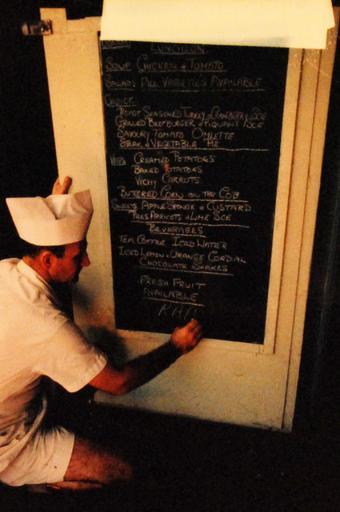 LUNCHEON
SOUP CHICKEN & TOMATO
SALADS ALL VARIETIES AVAILABLE
CHOICE
ROAST SEASONED TURKEY & CRANBERRY SCE
GRILLED BEEFBURGER & PIQUANT SCE
SAVOURY TOMATO OMLETTE
STEAK & VEGETABLE PIE
VEG CREAMED POTATOES
BAKED POTATOES
VICHY CARROTS
BUTTERED CORN ON THE COB
SWEETS APPLE SPONGE & CUSTARD
APRICOTS & LIME SCE
BEVERAGES
TEA COFFEE ICED WATER
ICED LEMON & ORANGE CORDIAN
CHOCOLATE SHAKES
FRESH FRUIT
AVAILABLE